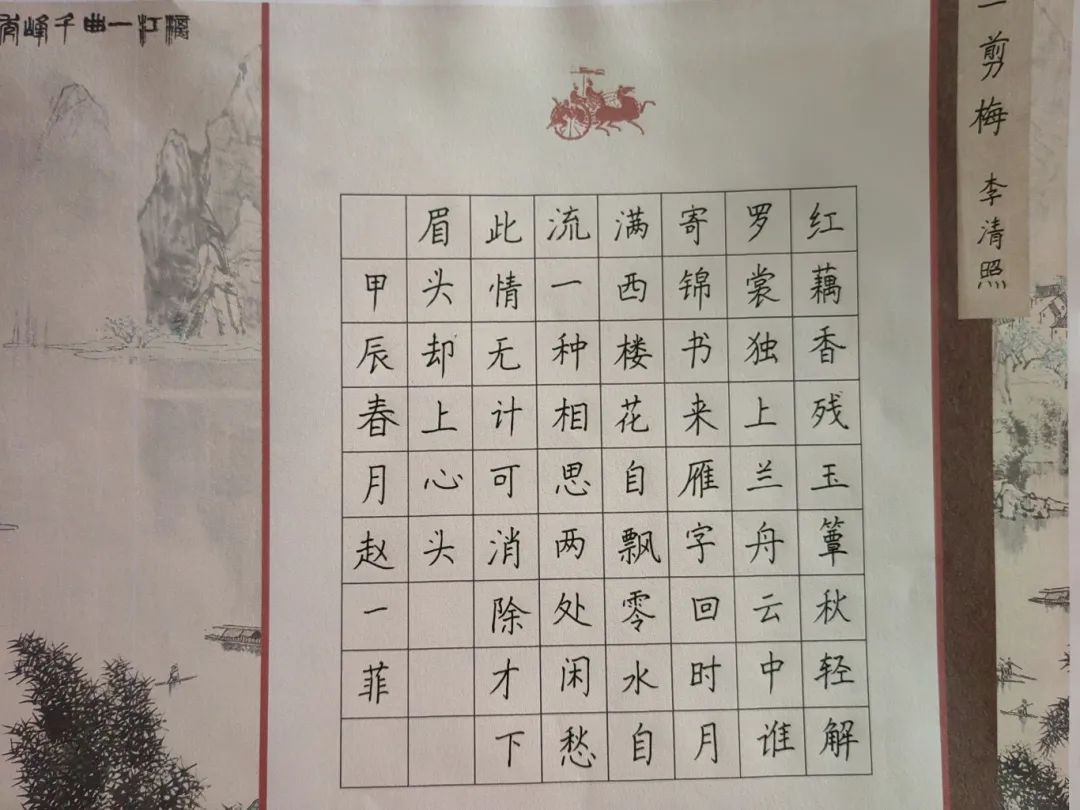 一剪梅 李清照
红藕香残玉簟秋轻解
罗裳独上兰舟云中谁
寄锦书来雁字回时月
满西楼花自飘零水自
流一种相思两处闲愁
此情无计可消除才下
眉头却上心头
甲辰春月赵一菲
一曲千峰